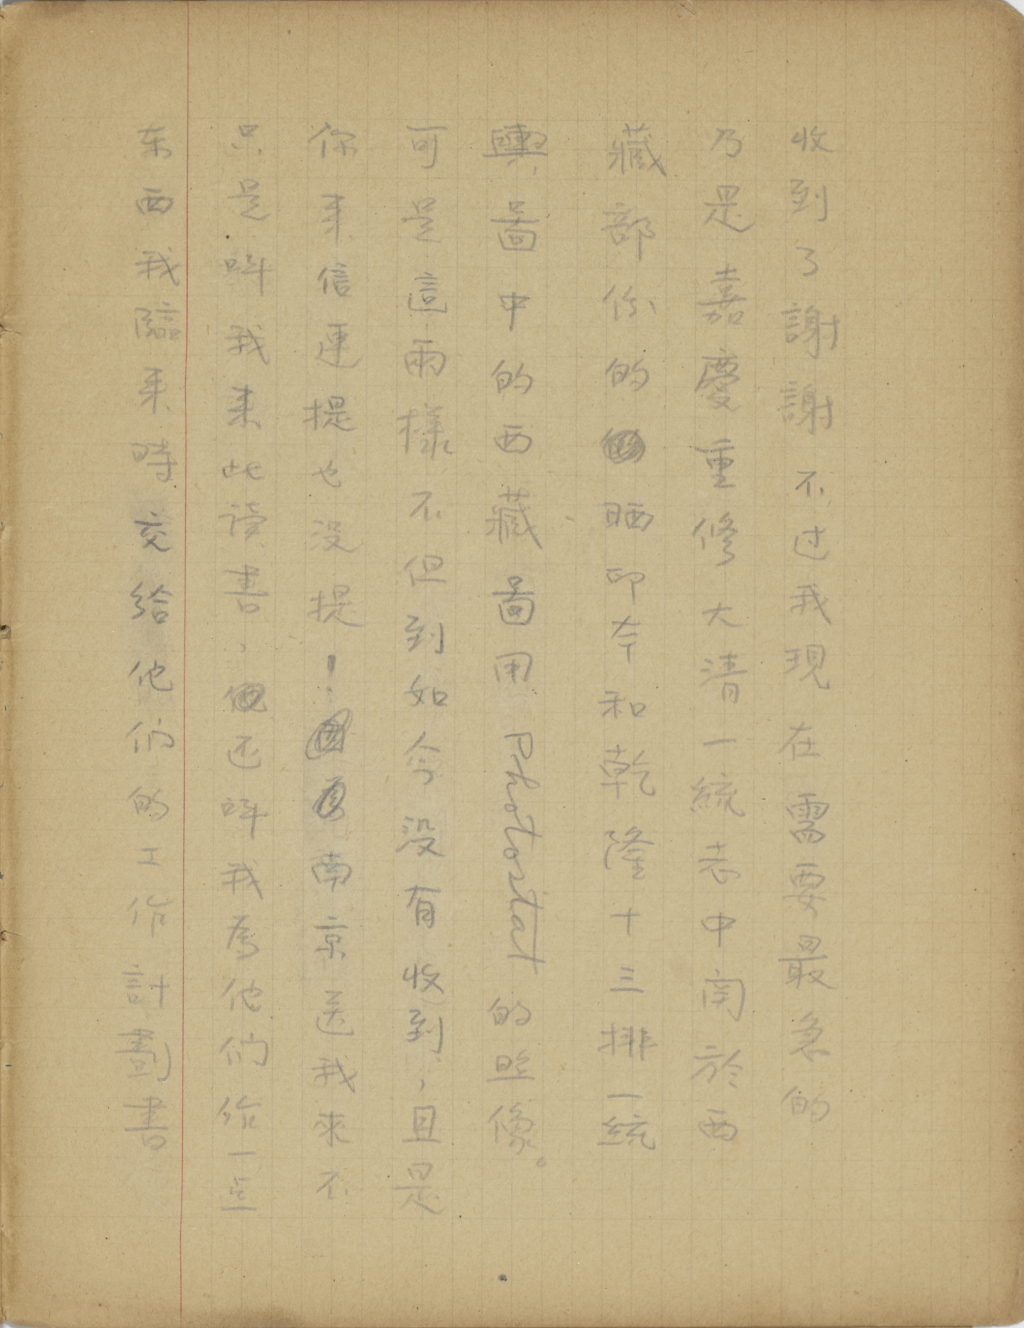 收到了謝謝不过我現在需要最急的
乃是嘉慶重修大清一統志中関於西
藏部份的晒印本和乾隆十三排一統
輿圖中的西藏圖用Photostat的照像。
可是這兩樣不但到如今没有收到，且是
你来信連提也没提！南京送我來不
只是呌我来此读書，还呌我為他们给一点
东西我臨来時交给他们的工作計劃書